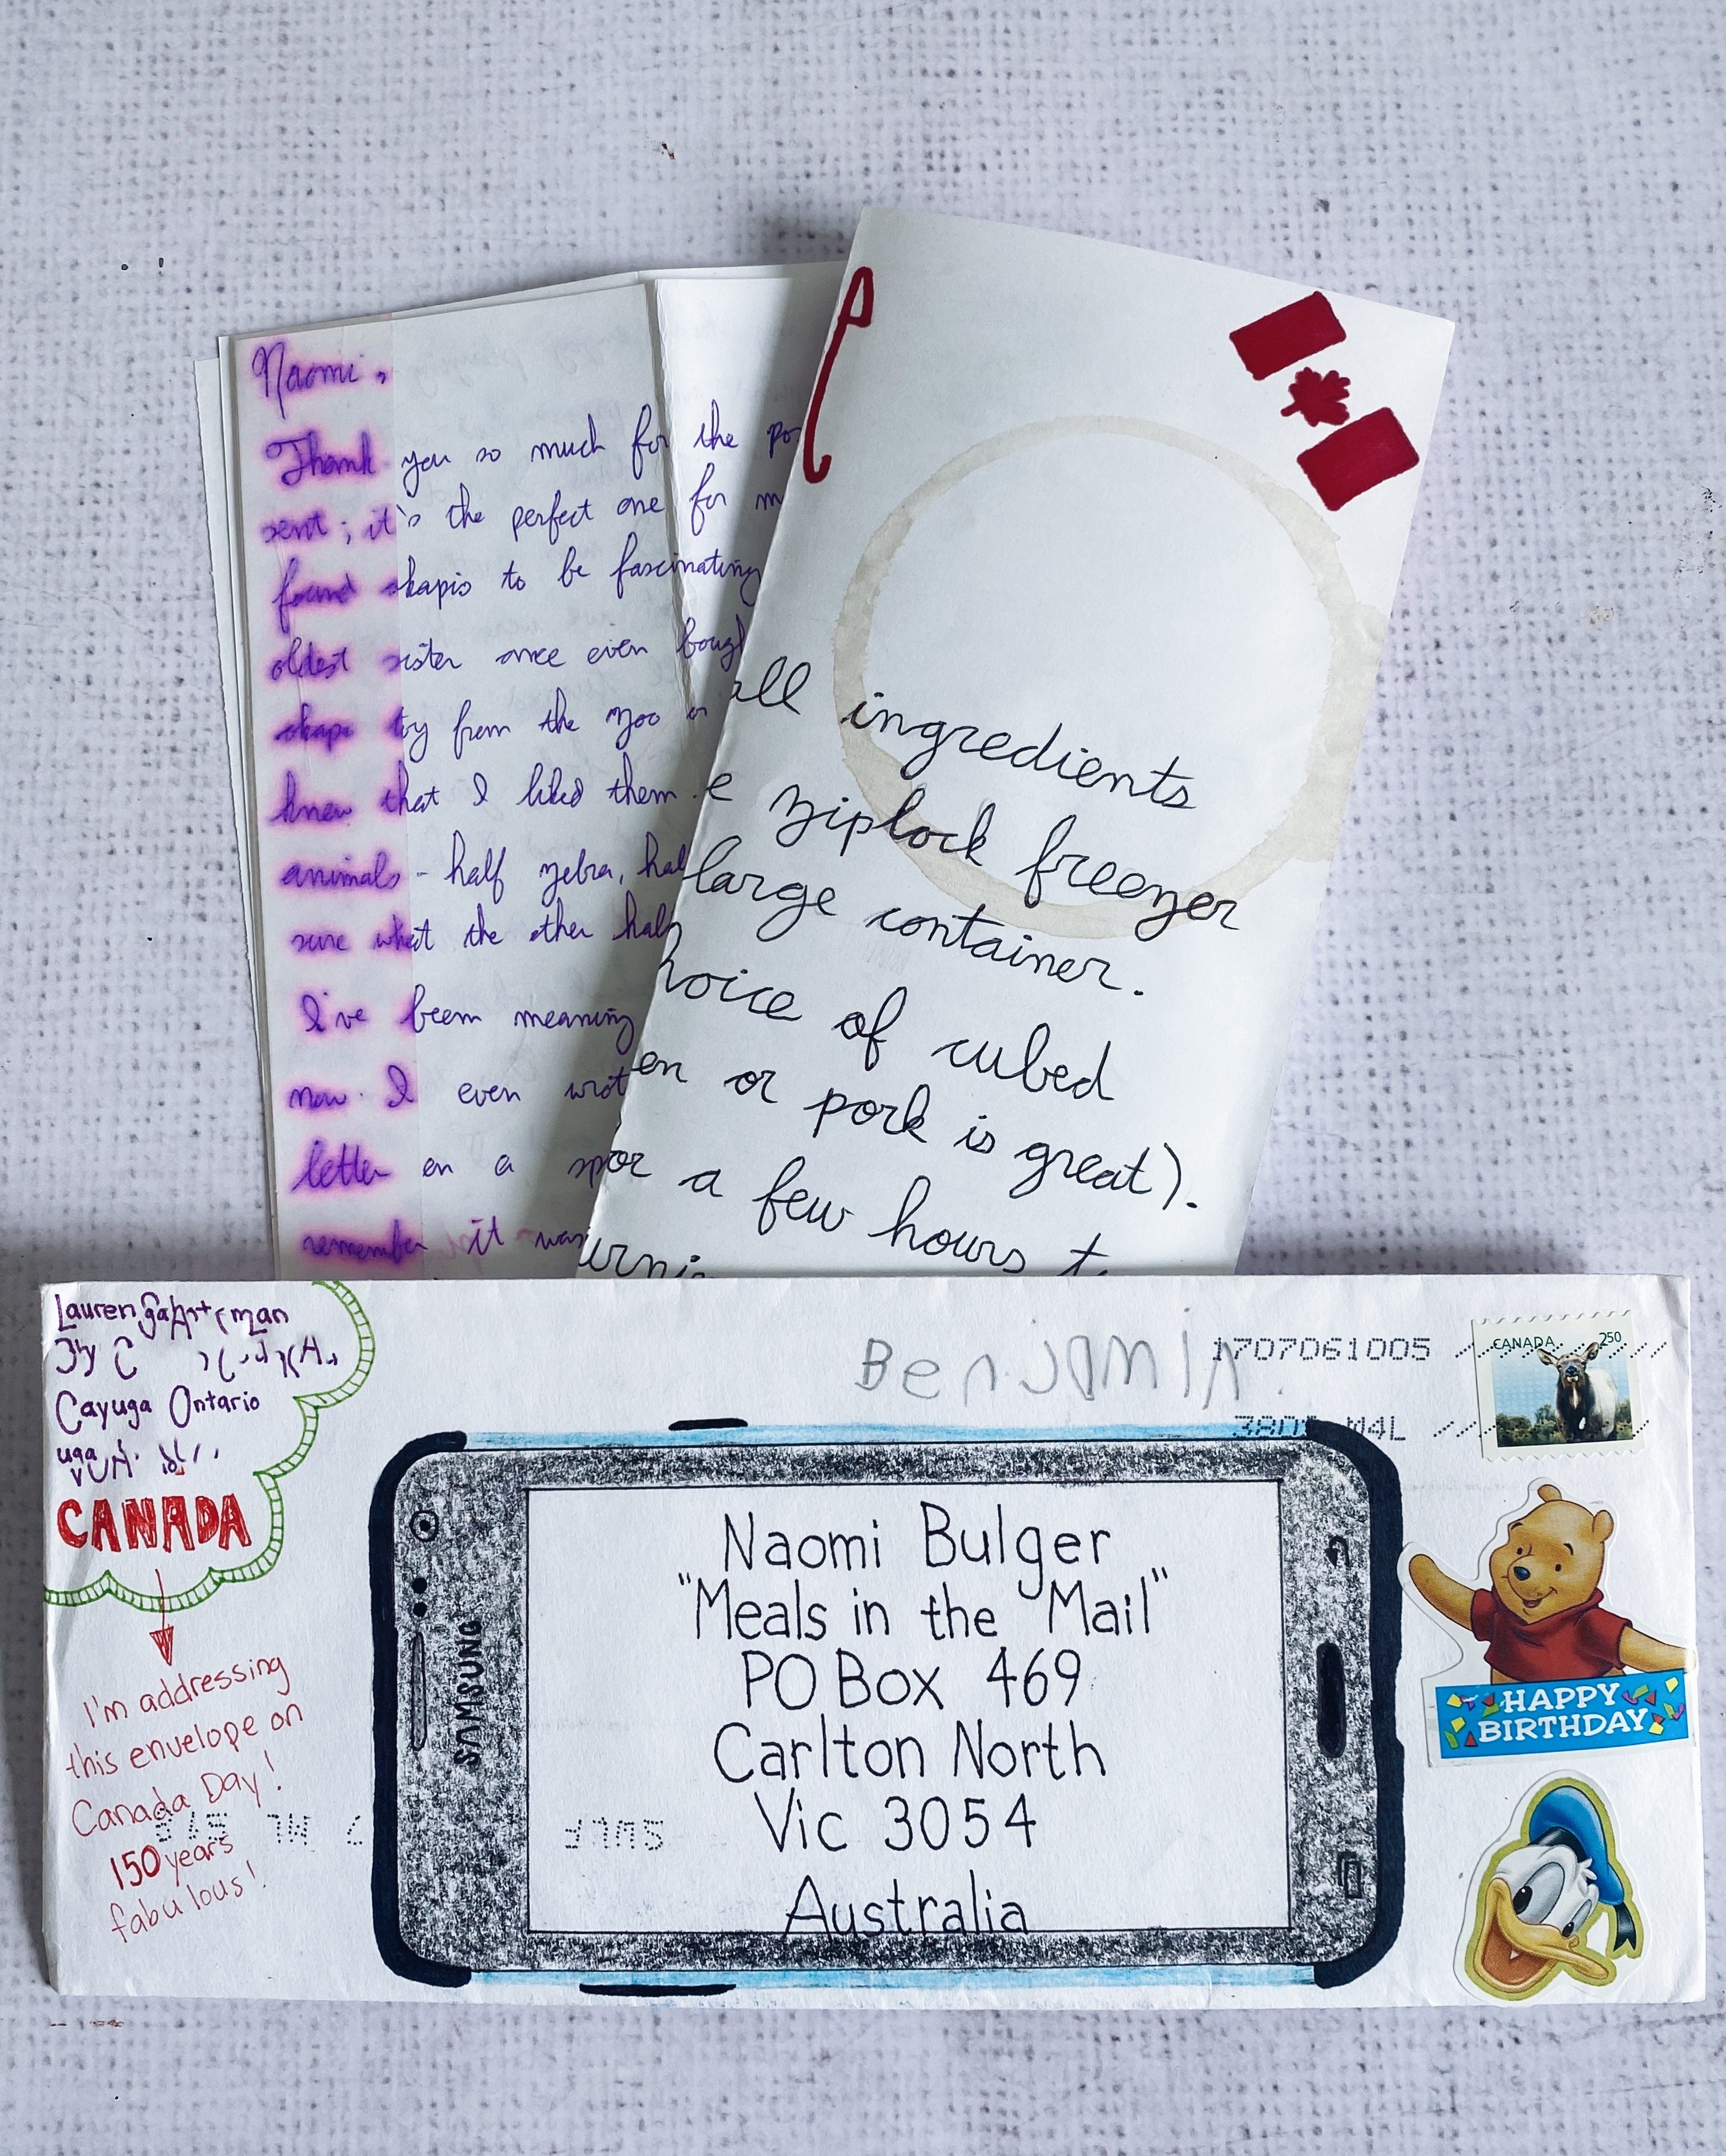 Naomi,
Thank you so much for the
sent; it's the perfect one for
found okapis to be fascinating
oldest sister once even
okapi toy from the zoo
knew that I liked them.
animals - half zebra,
sure what the other half
I've been meaning
now. I even
letter on a
remember it was
all ingredients
ziplock freezer
large container.
of cubed
or pork is great).
a few hours
Lauren
Cayuga Ontario
CANADA
I'm addressing
this envelope on
Canada Day!
150 years
fabulous!
Benjamin
1707061005
CANADA 250
M4L
SAMSUNG
Naomi Bulger
"Meals in the Mail"
PO Box 469
Carlton North
Vic 3054
Australia
HAPPY
BIRTHDAY